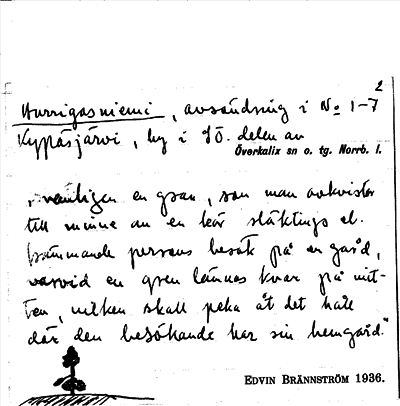 2
Hurrigasniemi, avsöndring i No 1-7
Kypäsjärvi, by i SÖ. delen av
Överkalix sn o. tg. Norrb. l.
"vanligen en gran, som man avkvistar
till minne av en kär släktings el.
främmande persons besök på en gård,
varvid en gren lämnas kvar på mit-
ten, vilken skall peka åt det håll
där den besökande har sin hemgård."
EDVIN BRÄNNSTRÖM 1936.